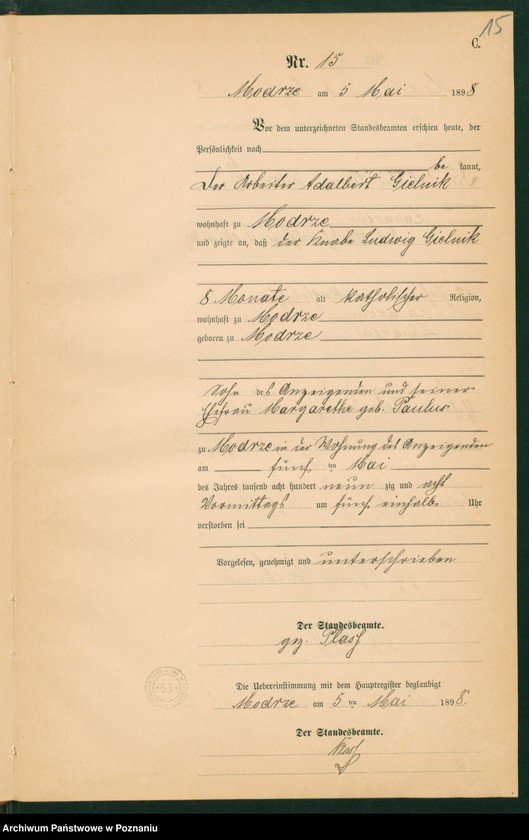 15
C.
Nr. 15
Modrze am 5 Mai 1898
Vor dem unterzeichneten Standesbeamten erschien heute, der
Persönlichkeit nach
be kannt,
Der Arbeiter Adalbert Gielnik
wohnhaft zu Modrze
und zeigte an, daß der Knabe Ludwig Gielnik
8 Monate alt katholischer Religion,
wohnhaft zu Modrze
geboren zu Modrze
Sohn des Anzeigenden und seiner
Ehefrau Margarethe geb. Paulus
zu Modrze in der Wohnung des Anzeigenden
am fünf ten Mai
des Jahres tausend acht hundert neun zig und acht
Vormittags um fünf einhalb Uhr
verstorben sei
Vorgelesen, genehmigt und unterschrieben
Der Standesbeamte.
gez.
Die Uebereinstimmung mit dem Hauptregister beglaubigt
Modrze am 5 ten Mai 1898.
Der Standesbeamte.
53
Archiwum Państwowe w Poznaniu